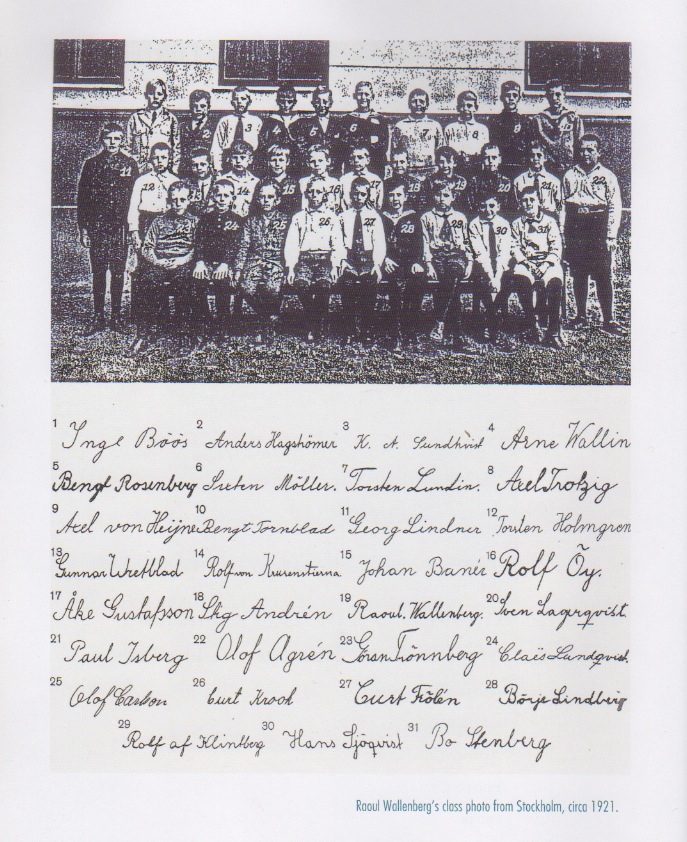 3 4 5 6 7 8 9
11 12 14 15 16 17 18 19 20 21 22
24 25 26 27 28 29 30 31
1 Inge Böös 2 Anders Hagströmer 3 K. A. Sundkvist 4 Arne Wallin
5 Bengt Rosenberg 6 Sixten Möller. 7 Torsten Lundin. 8 Axel Trotzig
9 Axel von Heijne 10 Bengt Tornblad 11 Georg Lindner 12 Torsten Holmgren
13 Gunnar Wretblad 14 Rolf von Krusenstierna 15 Johan Banér 16 Rolf Öy.
17 Åke Gustafsson 18 Stig Andrén 19 Raoul. Wallenberg. 20 Sven Lagerqvist.
21 Paul Isberg 22 Olof Ågrén 23 Göran Trönnberg 24 Claës Lundqvist.
25 Olof Carlson 26 Curt Krook 27 Curt Frölén 28 Börje Lindberg
29 Rolf af Klintberg 30 Hans Sjöqvist 31 Bo Stenberg
Raoul Wallenberg's class photo from Stockholm, circa 1921.